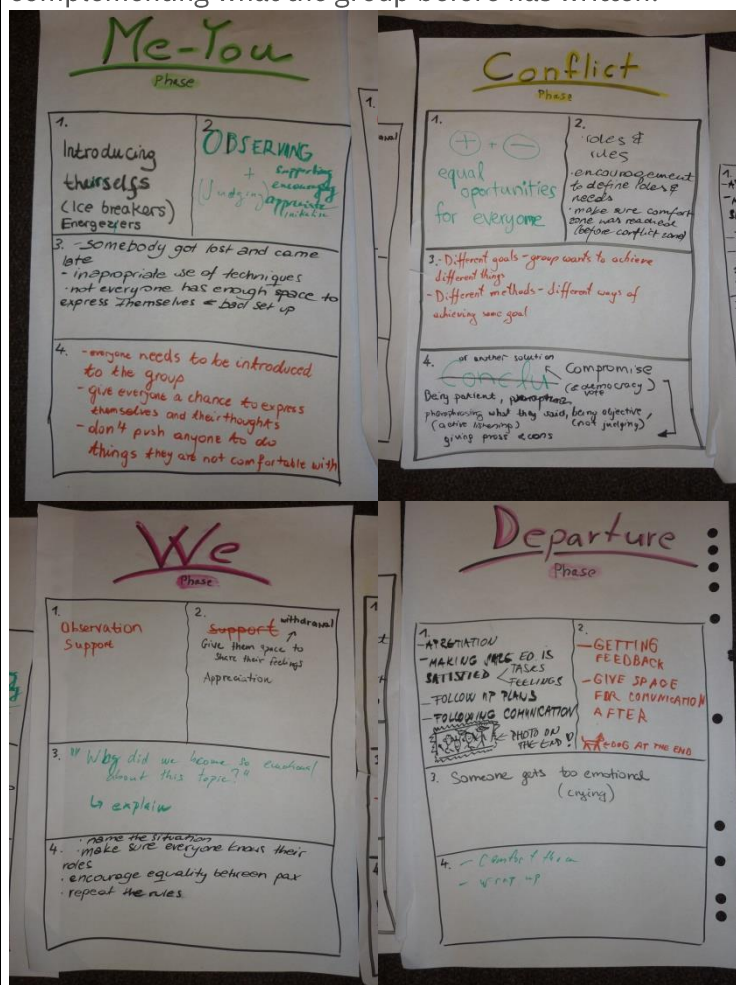 complementing what the group before has written.
Me-You
Phase
1.
Introducing
theirselfs
(Ice breakers)
Energezers
2.
OBSERVING
+ supporting
(Judging) encouraging
appreciate
3. - somebody got lost and came
late
- inapropriate use of techniques
- not everyone has enough space to
express themselves = bad set up
4. - everyone needs to be introduced
to the group
- give everyone a chance to express
themselves and their thoughts
- don't push anyone to do
things they are not comfortable with
1.
Conflict
Phase
1.
+ + -
equal
oportunities
for everyone
2.
roles &
rules
• encouragement
to define roles &
needs
• make sure comfort
zone was reached
(before conflict zone)
3. - Different goals - group wants to achieve
different things
- Different methods - different ways of
achieving same goal
4.
or another solution
Conclu
Compromise
(democracy)
vote
Being patient,
what they said, being objective,
(active listening) (not judging)
giving
We
Phase
1.
Observation
Support
2.
Support withdrawal
Give them space to
share their feelings
Appreciation
3. "Why did we become so emotional
about this topic?"
↳ explain
4. • name the situation
• make sure everyone knows their
roles
• encourage equality between pax
• repeat the rules
Departure
Phase
1.
- MAKING ED IS
SATISFIED < TASKS
FEELINGS
- FOLLOW UP PLANS
- FOLLOWING COMUNICATION
← PHOTO ON
THE END!
2.
- GETTING
FEEDBACK
- GIVE SPACE
FOR COMUNICATION
AFTER
DOG AT THE END
3. Someone gets too emotional
(crying)
4. - Comfort them
- wrap up